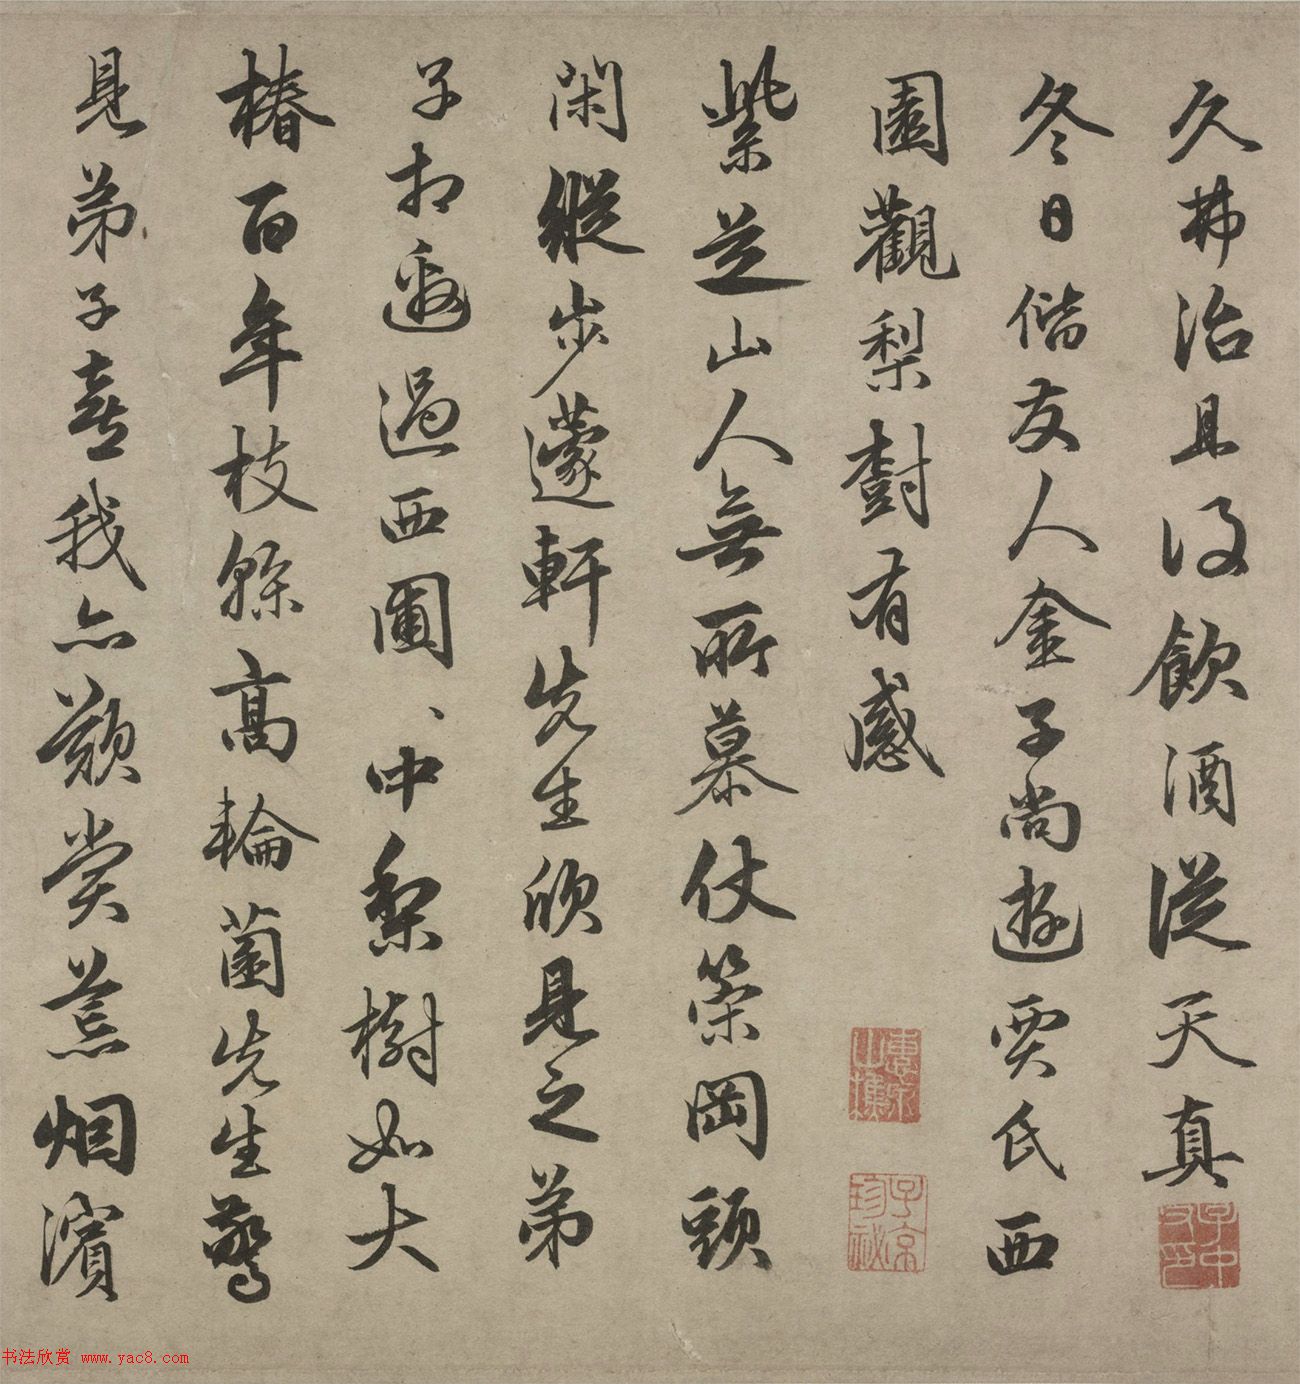 久弗治具没飲酒從天真
冬日偕友人金子尚遊賈氏西
園觀梨樹有感
紫芝山人無所慕仗策岡頭
閑縱步蘧軒先生欣見之弟
子相邀過西圃、中梨樹如大
椿百年枝幹高輪菌先生驚
見弟子喜我亦歎賞荒烟濱
子京
珍祕
书法欣赏 www.yac8.com